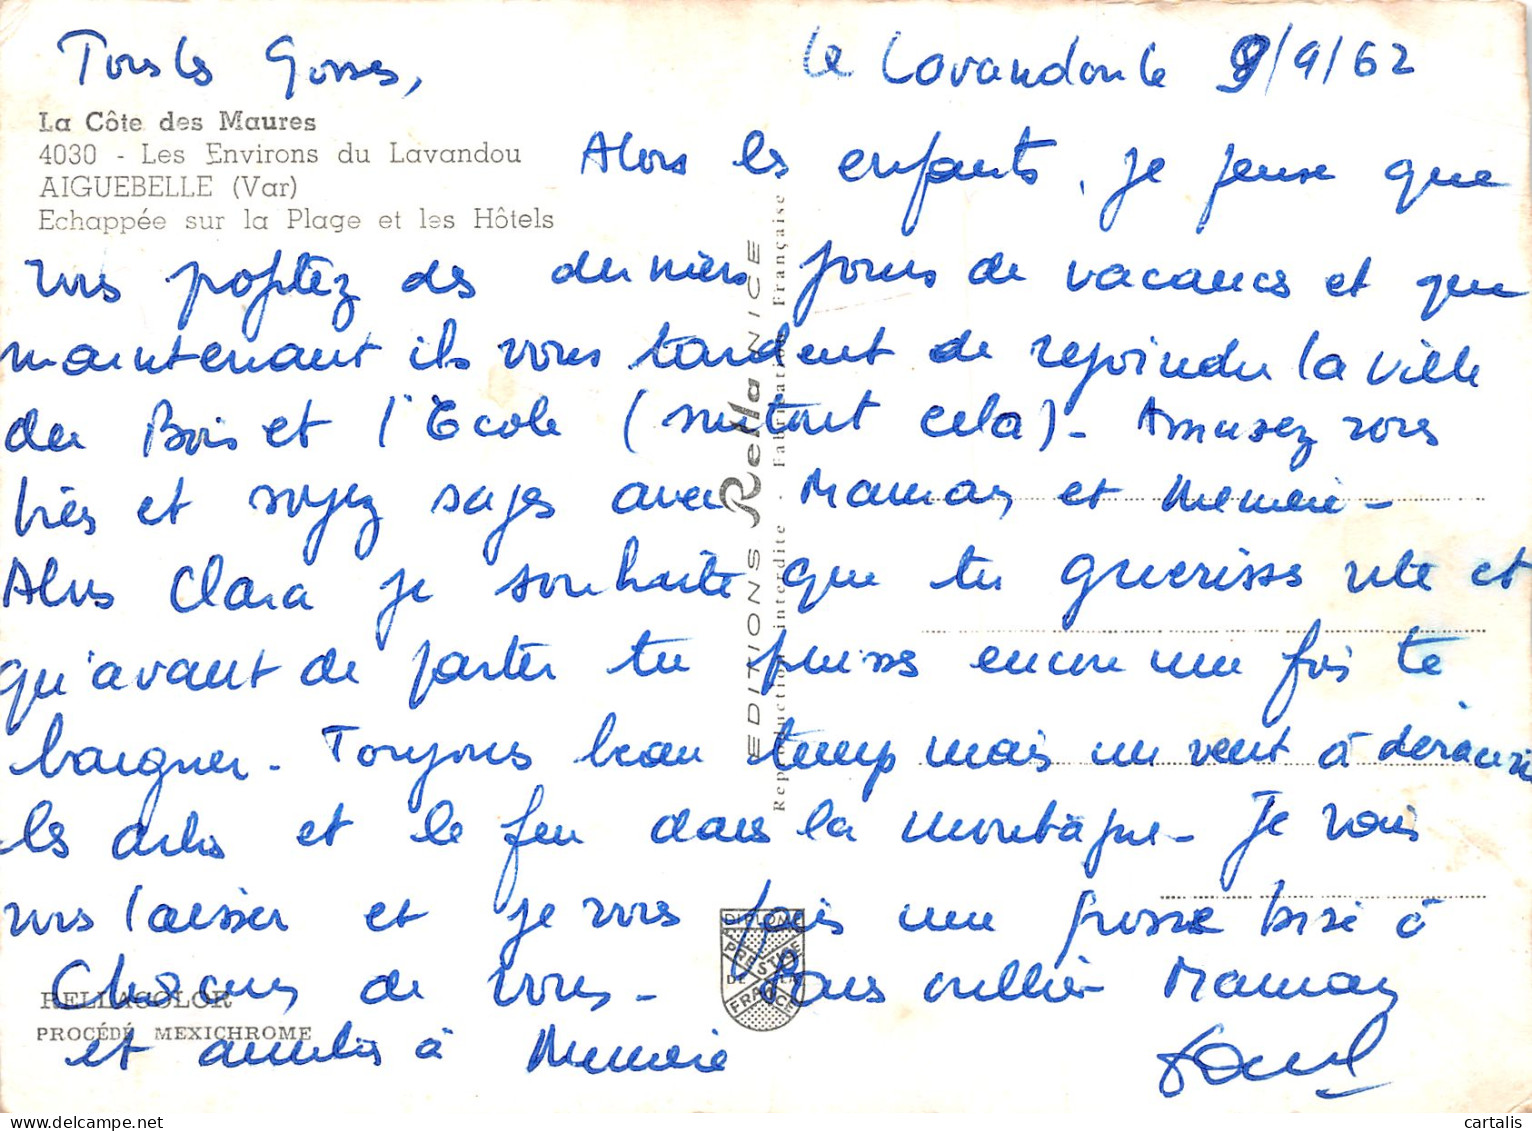 Tous les Gosses,
Le Lavandou le 9/9/62
La Côte des Maures
4030 - Les Environs du Lavandou
AIGUEBELLE (Var)
Echappée sur la Plage et les Hôtels
Alors les enfants, je pense que
vous profitez des derniers jours de vacances et que
maintenant ils vous tardent de rejoindre la ville
du Bois et l'Ecole (surtout cela) - Amusez vous
bien et soyez sages avec Maman et Memere -
Alors Clara je souhaite que tu guerisses vite et
qu'avant de partir tu puisses encore une fois te
baigner - Toujours beau temps mais un vent à déraciner
les arbres et le feu dans la montagne - Je vais
vous laisser et je vous fais une grosse bise à
Chacuns de vous - Sans oublier Maman
et aussi à Memere
EDITIONS Rella NICE
Reproduction interdite - Fabrication Française
DIPLOME
PRESTIGE
DE LA
FRANCE
RELLACOLOR
PROCÉDÉ MEXICHROME
cartalis
cartalis.com